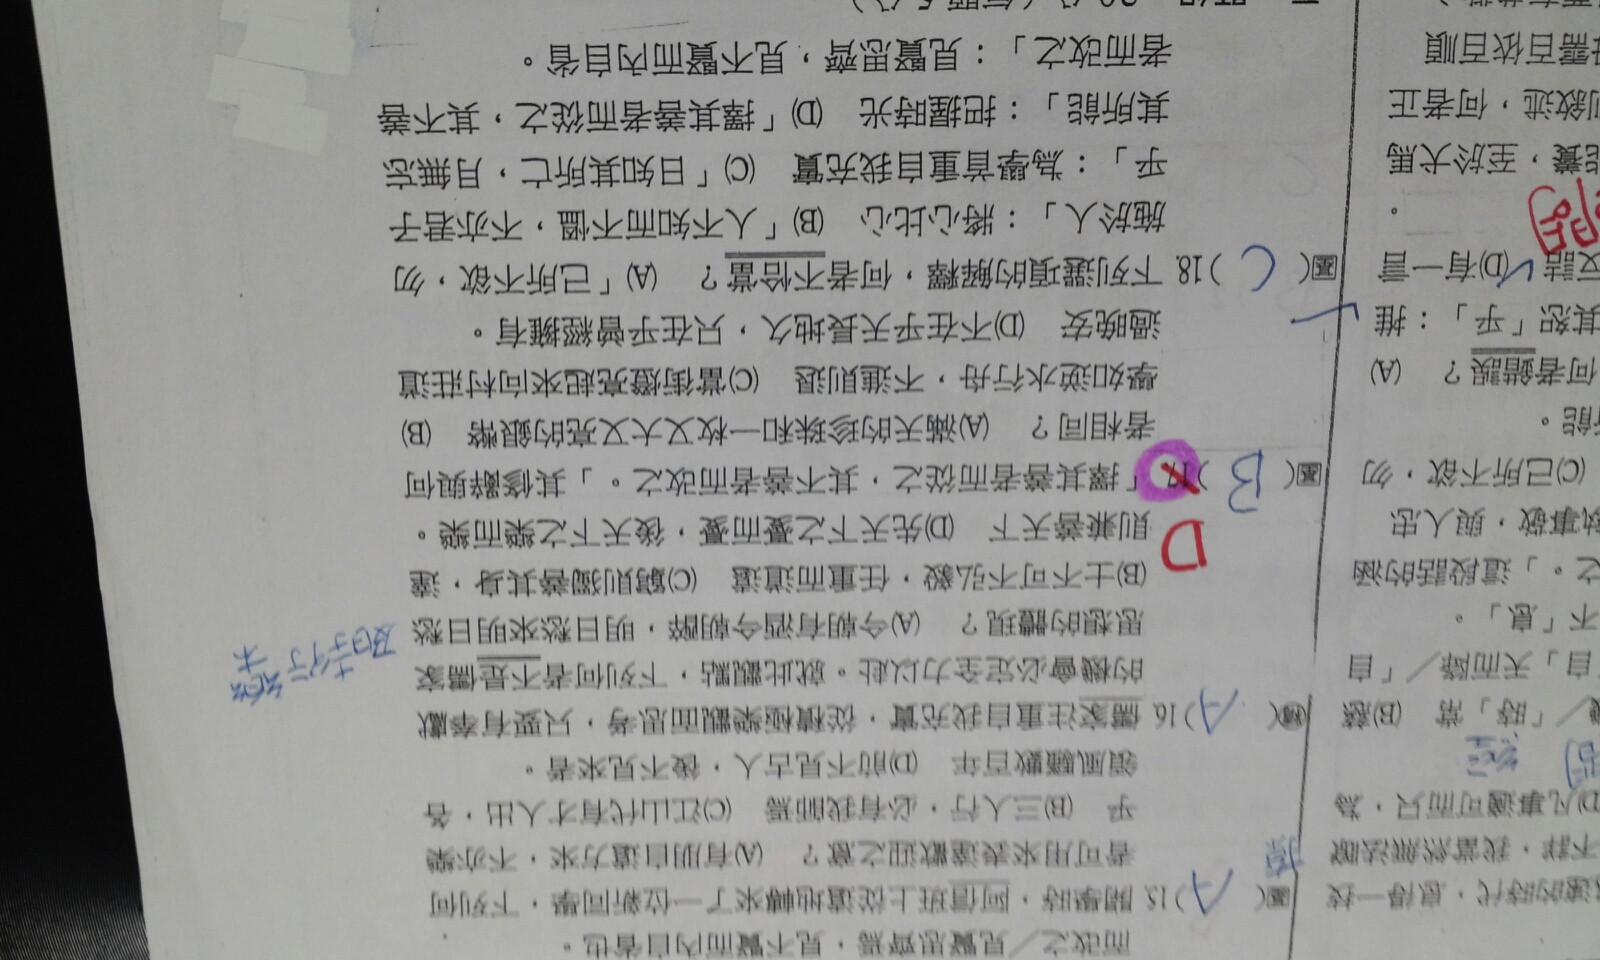 不詳，我當然無法
(D)凡事適可而只，為
／「時」常 (B)
自」天而降／「自
不「息」。
之。」這段話的涵
執事敬，與人忠
(C)己所不欲，勿
能。
何者錯誤？ (A)
其恕「乎」：推
反詰 (D)有一言
能養，至於犬馬
列敘述，何者正
而改之／見賢思齊焉，見不賢而內自省也。
( A )15. 開學時，阿信班上從遠地轉來了一位新同學，下列何
者可用來表達歡迎之意？ (A)有朋自遠方來，不亦樂
乎 (B)三人行，必有我師焉 (C)江山代有才人出，各
領風騷數百年 (D)前不見古人，後不見來者。
( A )16. 儒家注重自我充實，從積極樂觀面思考，只要有奉獻
的機會必定全力以赴。就此觀點，下列何者不是儒家
思想的體現？ (A)今朝有酒今朝醉，明日愁來明日愁
(B)士不可不弘毅，任重而道遠 (C)窮則獨善其身，達
則兼善天下 (D)先天下之憂而憂，後天下之樂而樂。
D
( B )17. 「擇其善者而從之，其不善者而改之。」其修辭與何
者相同？ (A)滿天的珍珠和一枚又大又亮的銀幣 (B)
學如逆水行舟，不進則退 (C)當街燈亮起來向村莊道
過晚安 (D)不在乎天長地久，只在乎曾經擁有。
( C )18. 下列選項的解釋，何者不恰當？ (A)「己所不欲，勿
施於人」：將心比心 (B)「人不知而不慍，不亦君子
乎」：為學首重自我充實 (C)「日知其所亡，月無忘
其所能」：把握時光 (D)「擇其善者而從之，其不善
者而改之」：見賢思齊，見不賢而內自省。